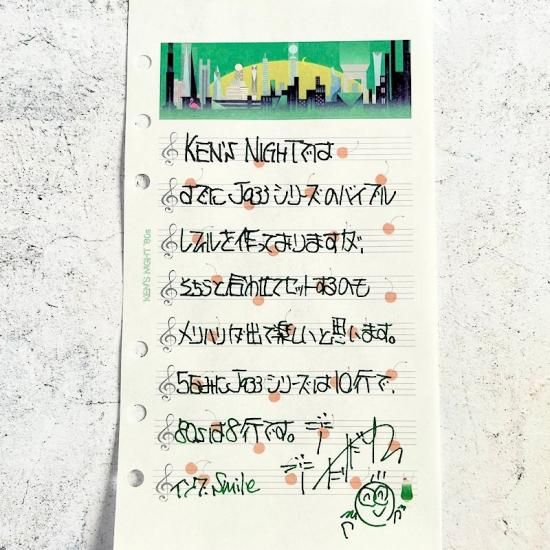 KEN'S NIGHTです
すでにJazzシリーズのバイブル
レフィルを作っておりますが、
そちらと合わせてセットするのも
メリハリが出て楽しいと思います。
ちなみにJazzシリーズは10行で、
80sは8行です。
インク:Smile
KEN'S NIGHT '80s